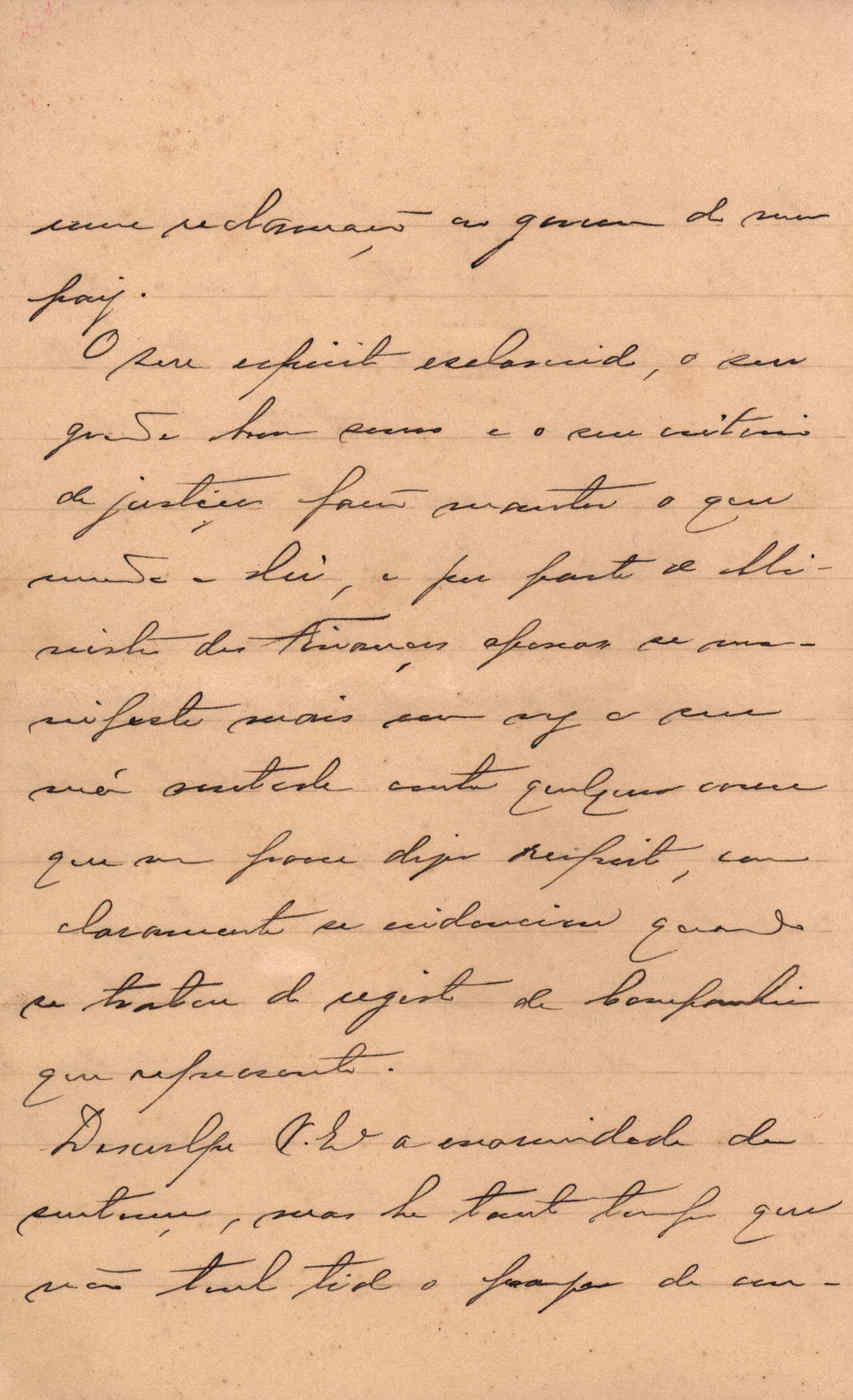 uma reclamação ao governo de meu
paiz.
O seu espirito esclarecido, o seu
grande bom senso e o seu criterio
de justiça farão manter o que
manda a Lei, e por parte do Mi-
nistro das Finanças apenas se ma-
nifesta mais uma vez a sua
má vontade contra qualquer cousa
que me possa dizer respeito, como
claramente se evidenciou quando
se tratou do registo da Companhia
que represento.
Desculpe V. Exª a enormidade da
, mas ha tanto tempo que
não tenho tido o prazer de con-